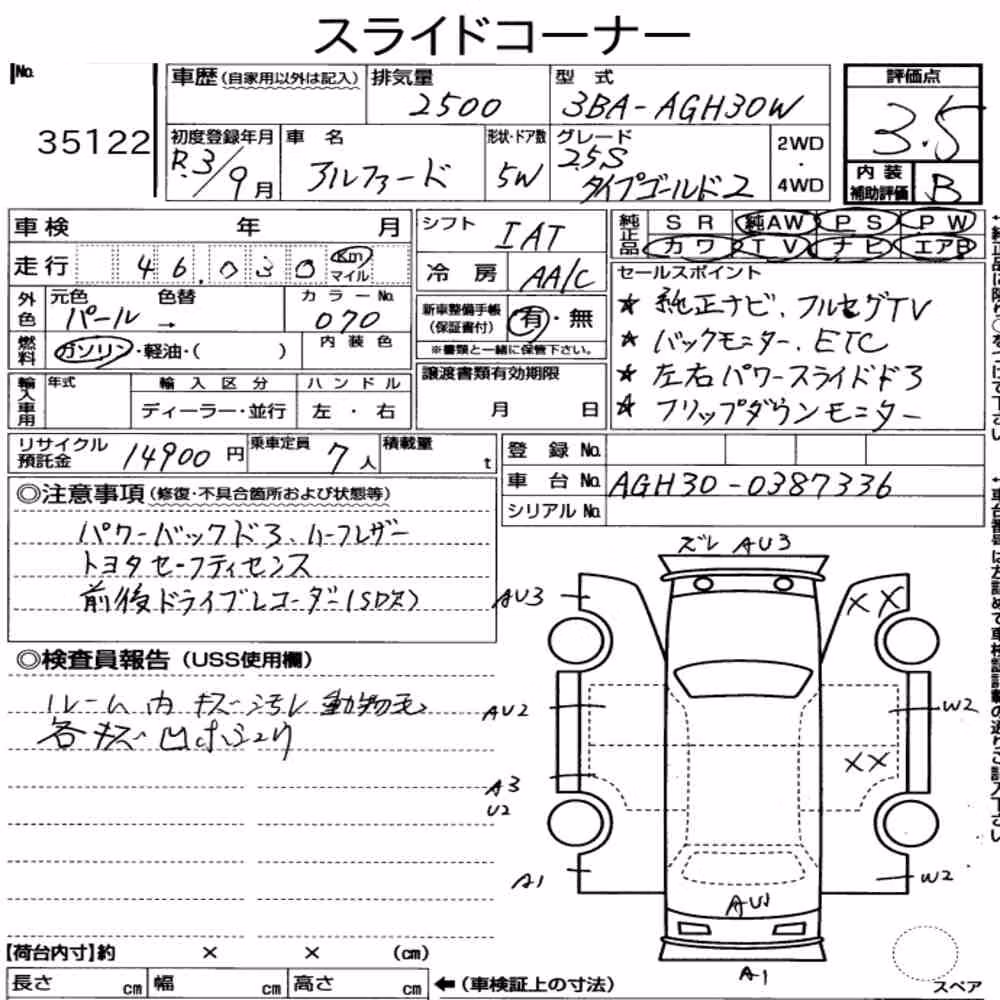 スライドコーナー
No.
35122
車歴(自家用以外は記入)
排気量
2500
型式
3BA-AGH30W
評価点
3.5
初度登録年月
R.3/9月
車名
アルファード
形状・ドア数
5W
グレード
2.5S
タイプゴールド2
2WD
・
4WD
内装
補助評価
B
車検 年 月
シフト
IAT
純正品
SR 純AW PS PW
カワ TV ナビ エアB
走行
46,030
Km
マイル
冷房
AA/C
セールスポイント
★ 純正ナビ、フルセグTV
★ バックモニター、ETC
★ 左右パワースライドドア
★ フリップダウンモニター
外色
元色 色替
パール →
カラーNo.
070
新車整備手帳
(保証書付)
有・無
※書類と一緒に保管下さい。
燃料
ガソリン・軽油・( )
内装色
譲渡書類有効期限
月 日
輸入車用
年式
輸入区分
ディーラー・並行
ハンドル
左・右
リサイクル
預託金
14900円
乗車定員
7人
積載量
t
登録No.
車台No.
AGH30-0387336
シリアルNo.
◎注意事項(修復・不具合箇所および状態等)
パワーバックドア、ハーフレザー
トヨタセーフティセンス
前後ドライブレコーダー(SD欠)
◎検査員報告(USS使用欄)
ルーム内キズ汚レ動物毛
各キズ凹
ズレ AU3
AU3
XX
AU2
W2
XX
A3
U2
A1
W2
AU1
A1
スペア
【荷台内寸】約 × × (cm)
長さ cm 幅 cm 高さ cm
←(車検証上の寸法)